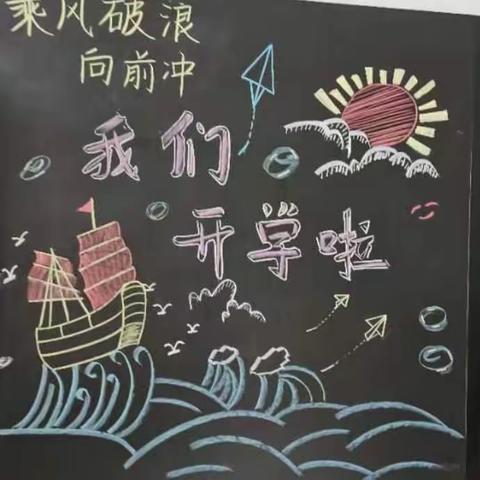 乘风破浪
向前冲
我们
开学啦